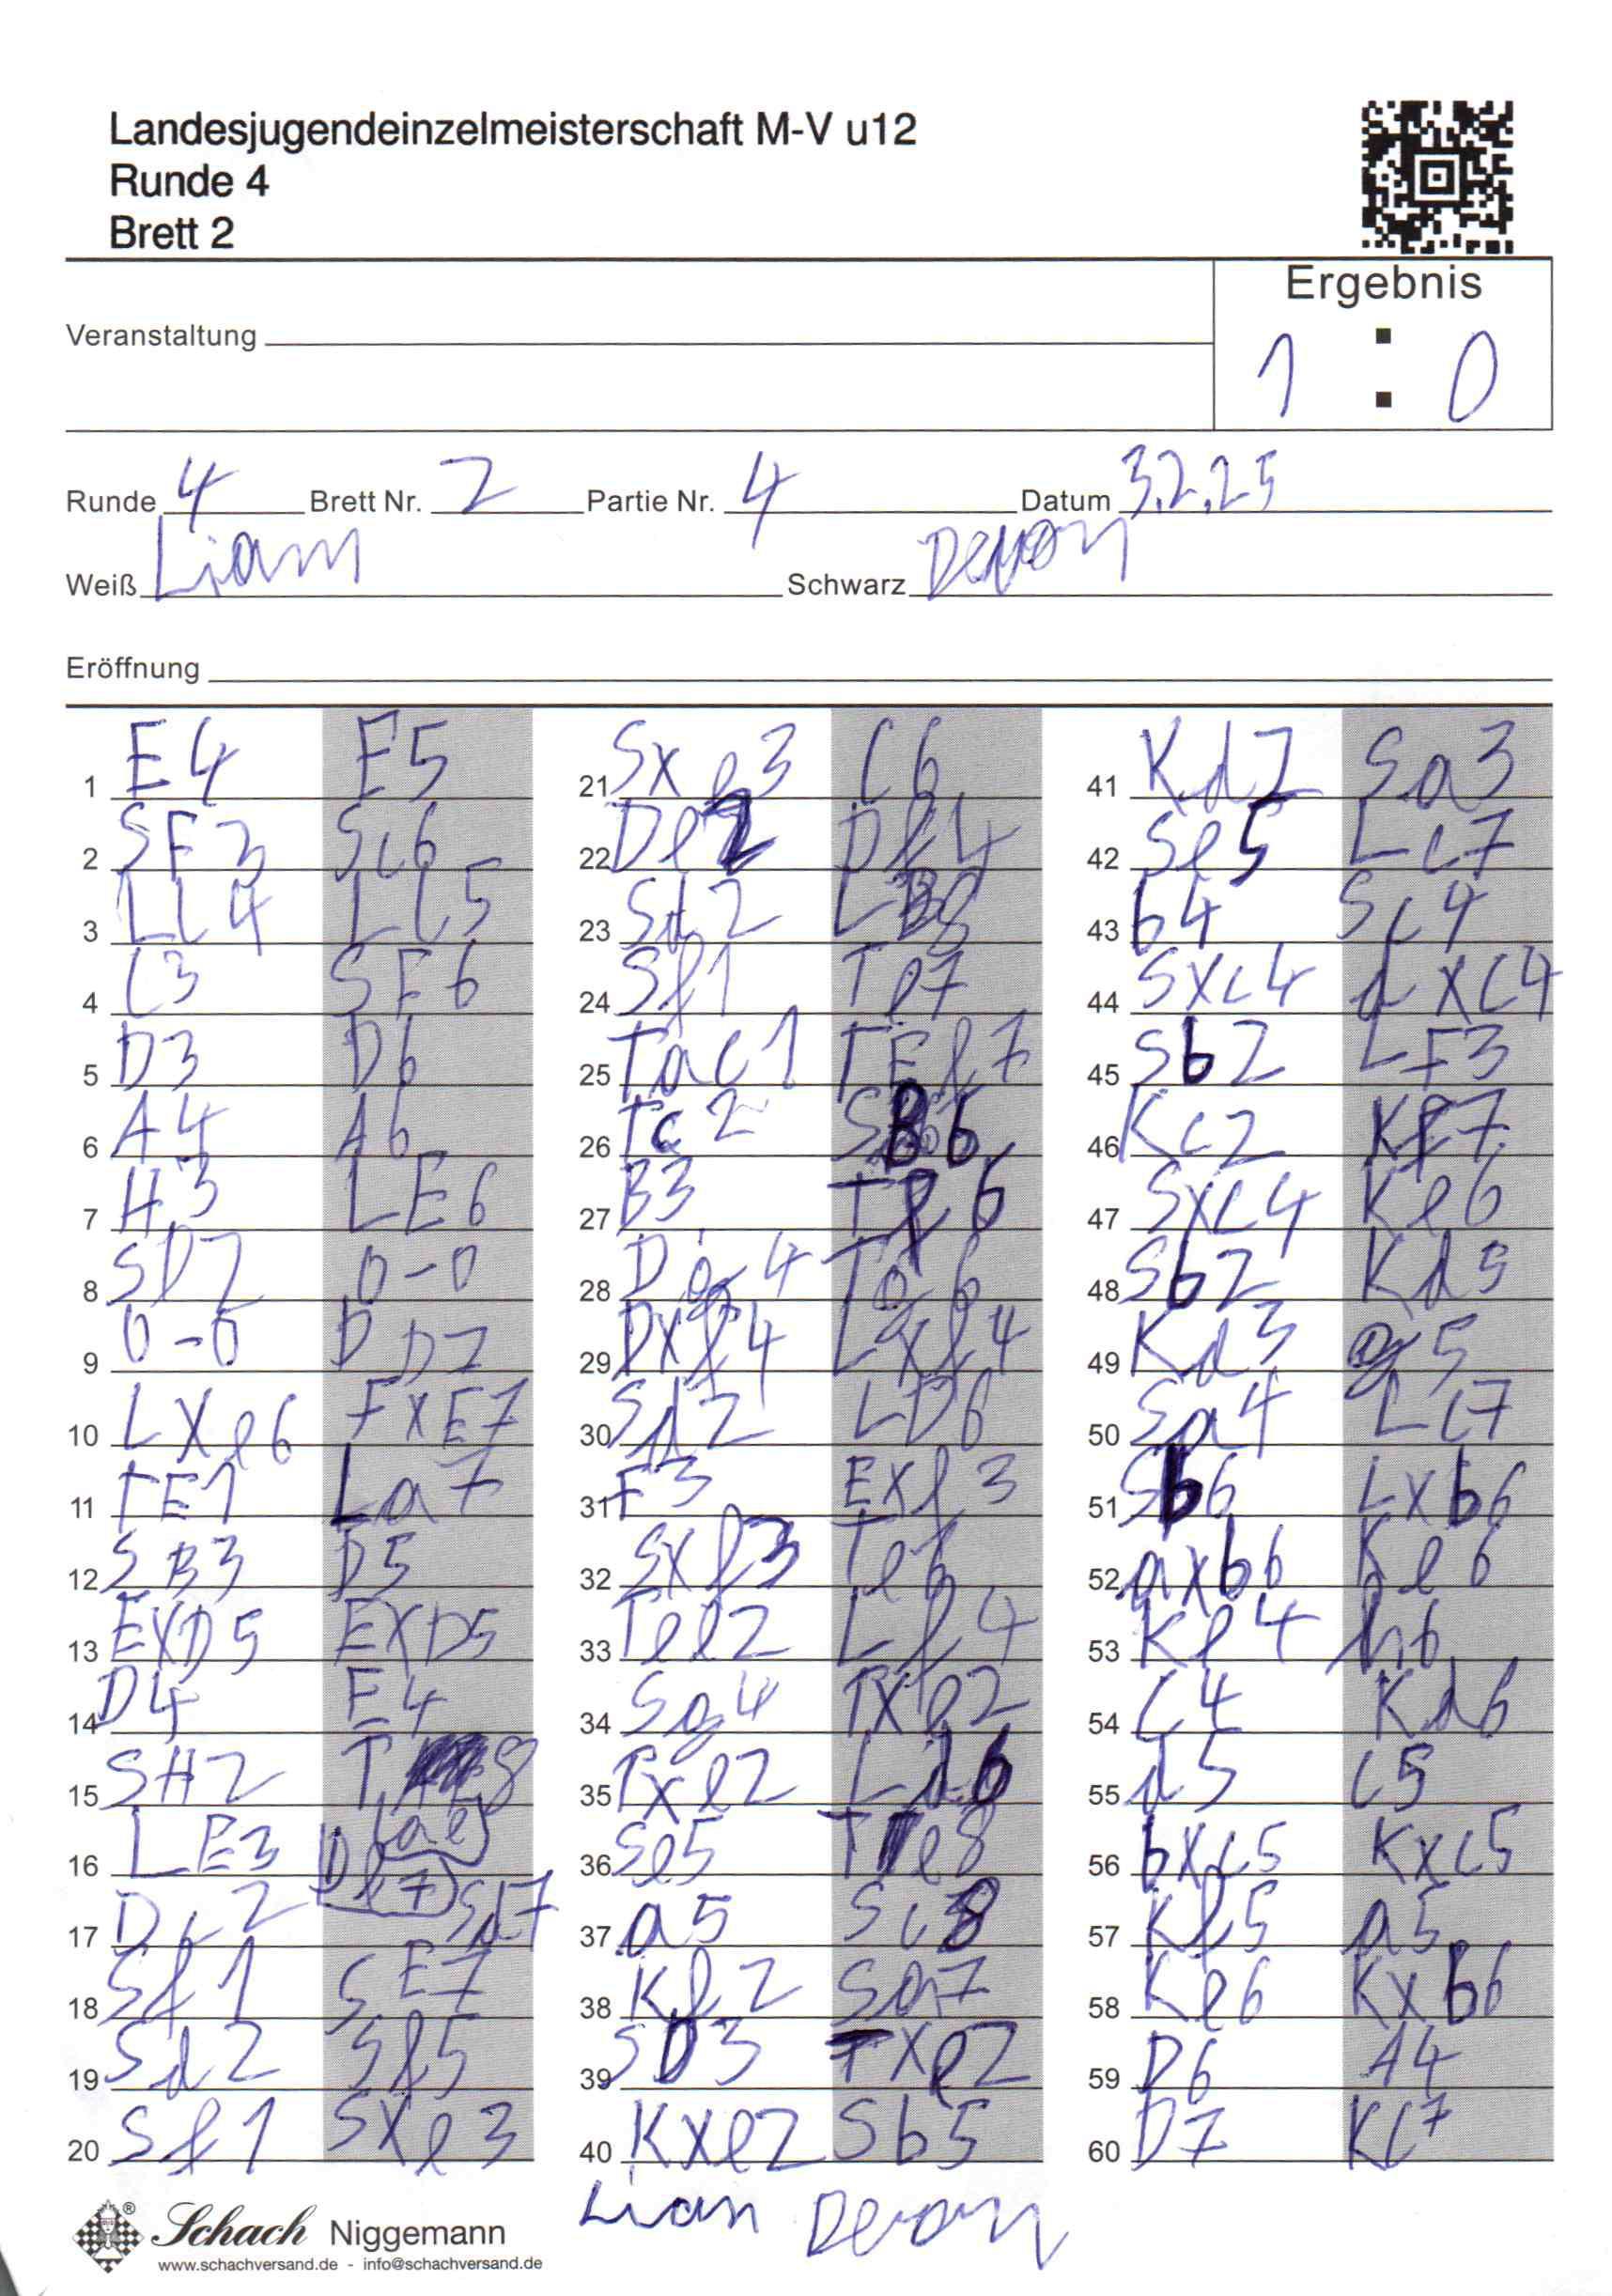 Landesjugendeinzelmeisterschaft M-V u12
Runde 4
Brett 2
Ergebnis
1 : 0
Veranstaltung
Runde 4 Brett Nr. 2 Partie Nr. 4 Datum 3.2.25
Weiß Liam Schwarz Devon
Eröffnung
1 E4 E5
2 SF3 Sc6
3 LC4 LC5
4 C3 SF6
5 D3 D6
6 A4 A6
7 H3 LE6
8 SD2 0-0
9 0-0 DD7
10 LXe6 FXE7
11 TE1 La7
12 SB3 D5
13 EXD5 EXD5
14 D4 E4
15 SH2 T 8 (ae)
16 LE3 Df7
17 Dc2 Sd7
18 Sf1 SE7
19 Sd2 Sf5
20 Sf1 SXe3
21 Sxe3 C6
22 De2 Df4
23 Sd2 LB8
24 Sf1 Te7
25 Tac1 TEf7
26 Tc2 SB6
27 B3 Tf6
28 Dg4 Tg6
29 Dxf4 Lxf4
30 Sd2 LD6
31 F3 EXf3
32 Sxf3 Te6
33 Tee2 Lf4
34 Sg4 TXe2
35 Txe2 Ld6
36 Se5 Te8
37 a5 Sc8
38 Kf2 Sa7
39 SD3 TXe2
40 KXe2 Sb5
41 Kd2 Sa3
42 Se5 Lc7
43 b4 Sc4
44 SXc4 dXC4
45 Sb2 LF3
46 Kc2 Kf7
47 SXC4 Ke6
48 Sb2 Kd5
49 Kd3 g5
50 Sa4 LC7
51 Sb6 LXb6
52 axb6 Ke6
53 Ke4 h6
54 C4 Kd6
55 d5 C5
56 bXc5 KXC5
57 Kf5 a5
58 Ke6 KXb6
59 D6 A4
60 D7 KC7
Liam Devon
Schach Niggemann
www.schachversand.de - info@schachversand.de